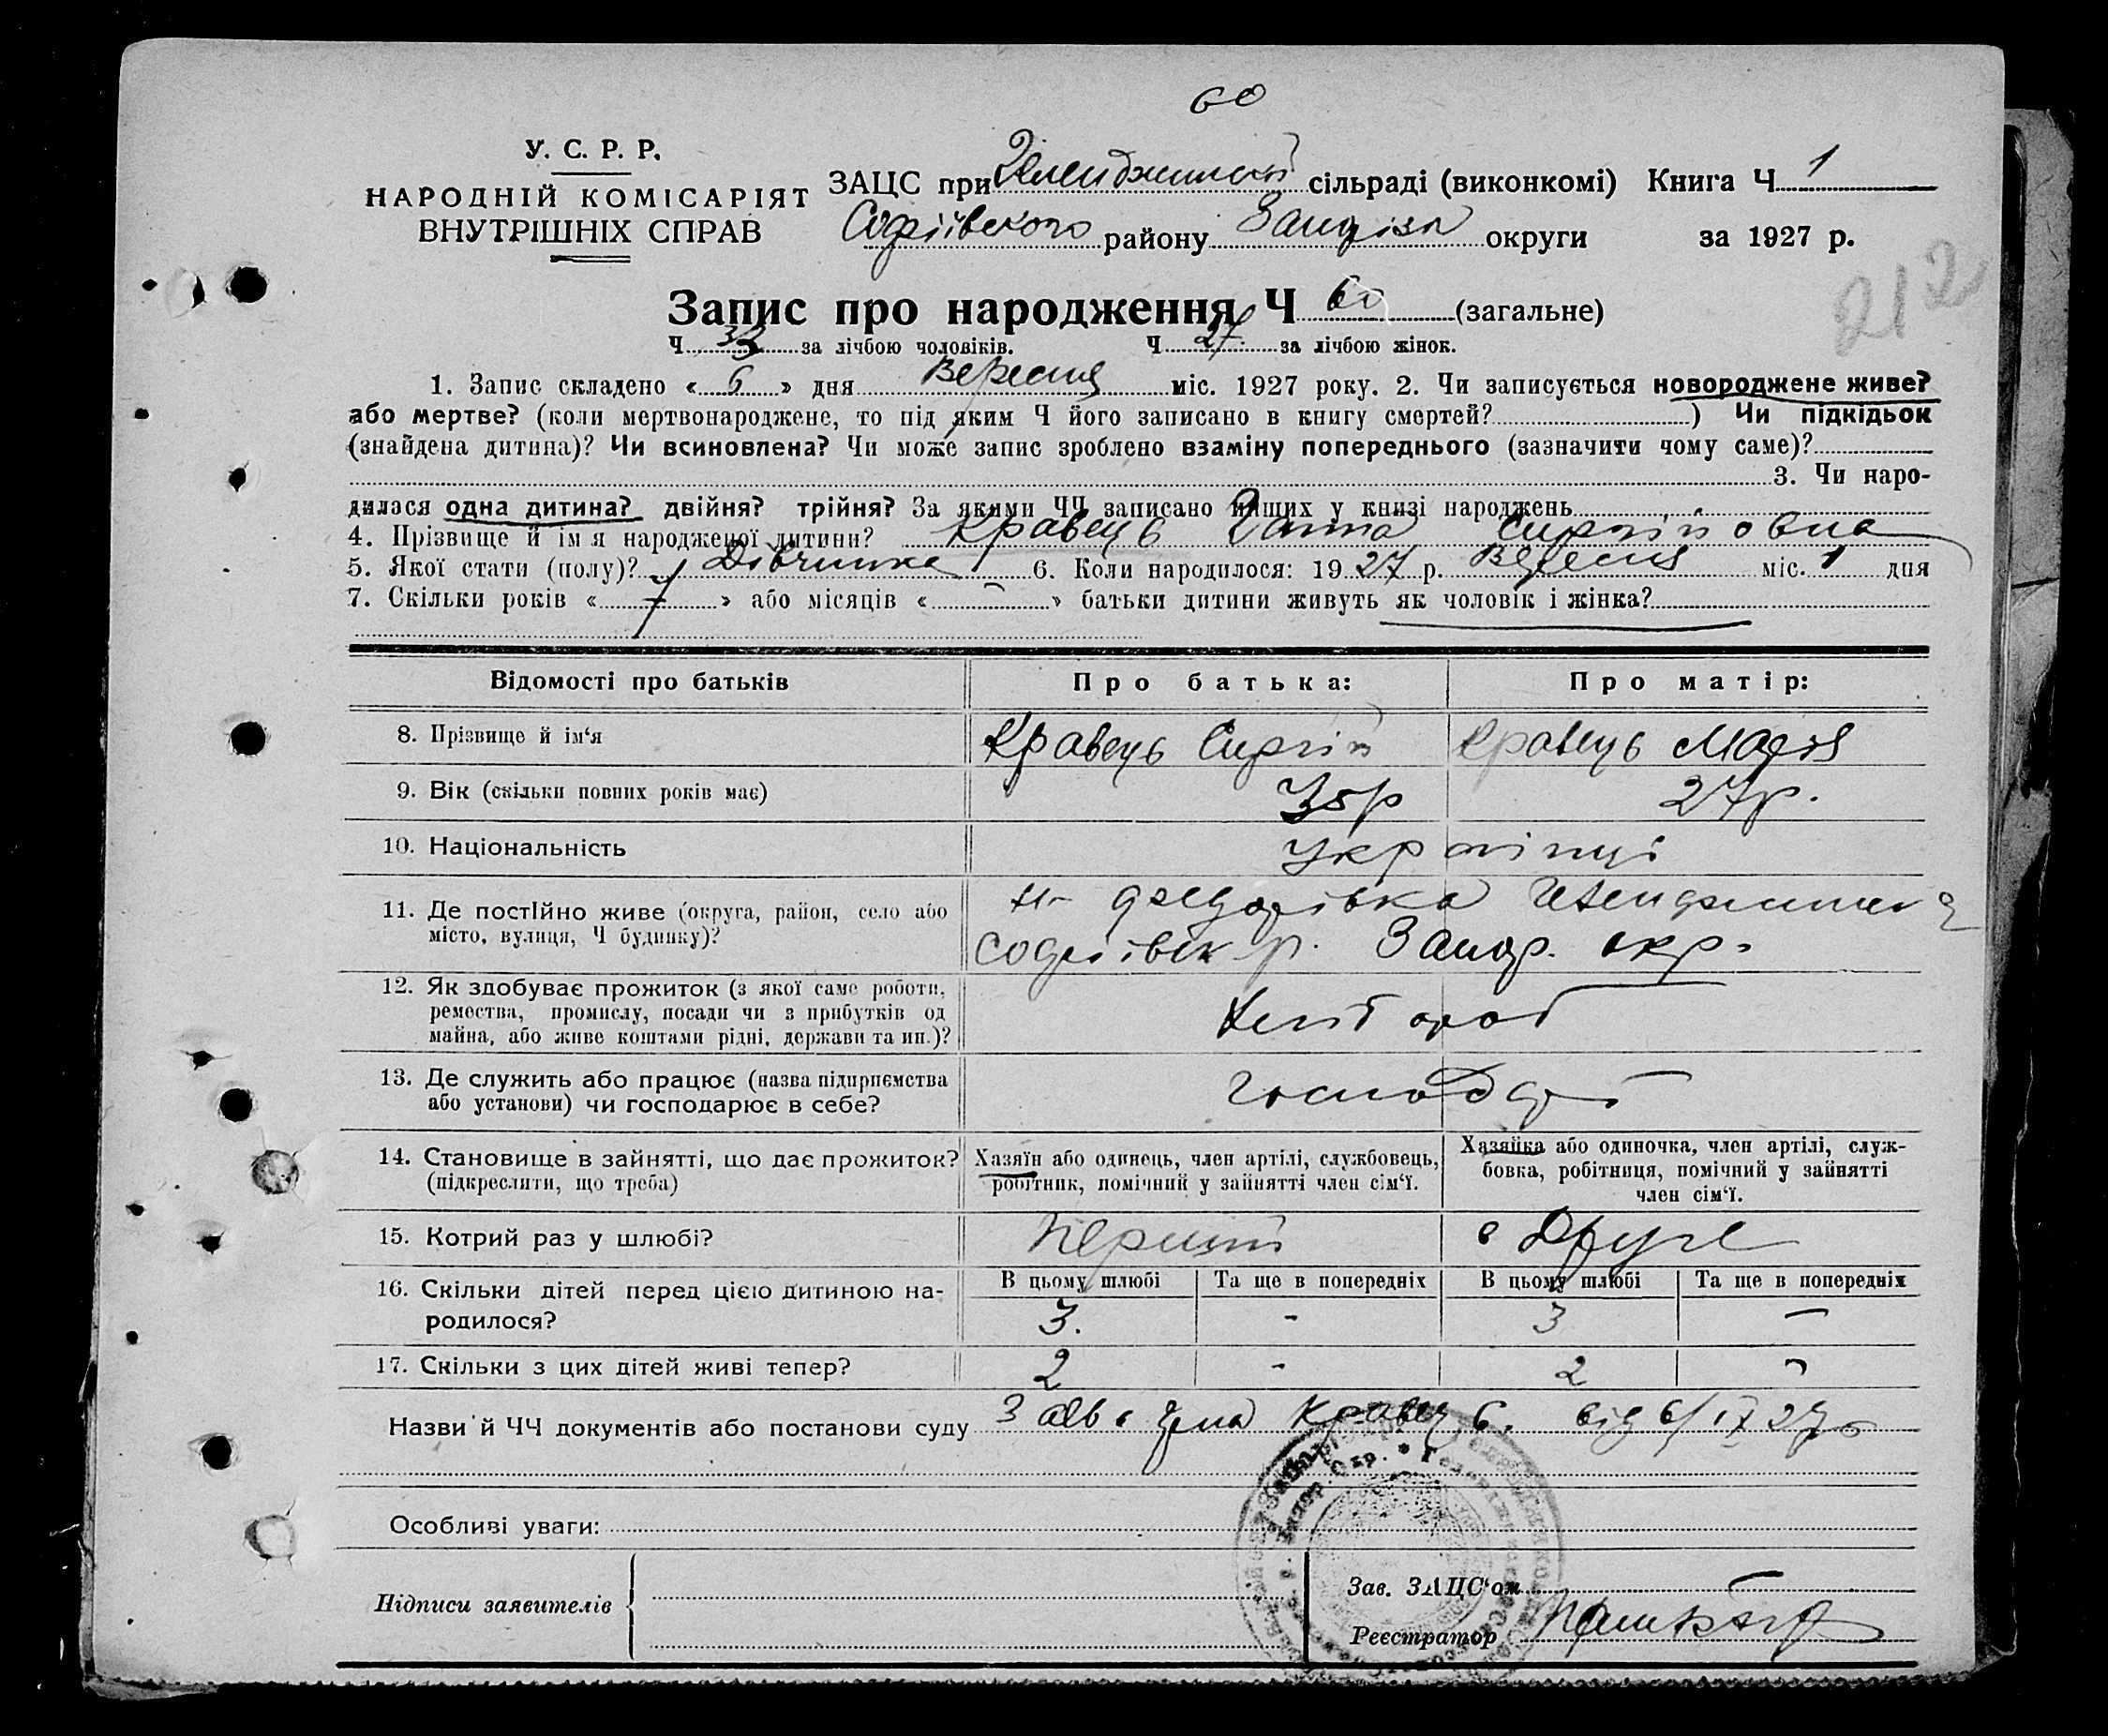 60
У. С. Р. Р.
НАРОДНІЙ КОМІСАРІЯТ
ВНУТРІШНІХ СПРАВ
ЗАЦС при сільраді (виконкомі) Книга Ч 1
Софіївского району округи за 1927 р.
212
Запис про народження Ч 60 (загальне)
Ч 33 за лічбою чоловіків. Ч 27. за лічбою жінок.
1. Запис складено « 6 » дня Вересня міс. 1927 року. 2. Чи записується новороджене живе?
або мертве? (коли мертвонароджене, то під яким Ч його записано в книгу смертей? ) Чи підкідьок
(знайдена дитина)? Чи всиновлена? Чи може запис зроблено взаміну попереднього (зазначити чому саме)?
3. Чи наро-
дилася одна дитина? двійня? трійня? За якими ЧЧ записано инших у книзі народжень
4. Прізвище й ім я народженої дитини? Кравець Ганна Сиргійовна
5. Якої стати (полу)? Дівчинка 6. Коли народилося: 19 27 р. Вересня міс. 1 дня
7. Скільки років « 7 » або місяців « - » батьки дитини живуть як чоловік і жінка?
Відомості про батьків Про батька: Про матір:
8. Прізвище й ім‘я Кравець Сиргій Кравець Марія
9. Вік (скільки повних років має) 35р 27р.
10. Національність українці
11. Де постійно живе (округа, район, село або
місто, вулиця, Ч будинку)?
Запор. окр.
12. Як здобуває прожиток (з якої саме роботи,
ремества, промислу, посади чи з прибутків од
майна, або живе коштами рідні, держави та ин.)?
13. Де служить або працює (назва підприємства
або установи) чи господарює в себе?
14. Становище в зайнятті, що дає прожиток?
(підкреслити, що треба)
Хазяїн або одинець, член артілі, службовець,
робітник, помічний у зайнятті член сім‘ї.
Хазяйка або одиночка, член артілі, служ-
бовка, робітниця, помічний у зайнятті
член сім‘ї.
15. Котрий раз у шлюбі? Перший Друге
16. Скільки дітей перед цією дитиною на-
родилося?
В цьому шлюбі Та ще в попередніх В цьому шлюбі Та ще в попередніх
3. - 3 -
17. Скільки з цих дітей живі тепер? 2 - 2 -
Назви й ЧЧ документів або постанови суду Кравець від 6/IX 27р
Особливі уваги:
Підписи заявителів
Зав. ЗАЦС‘ом
Реєстратор